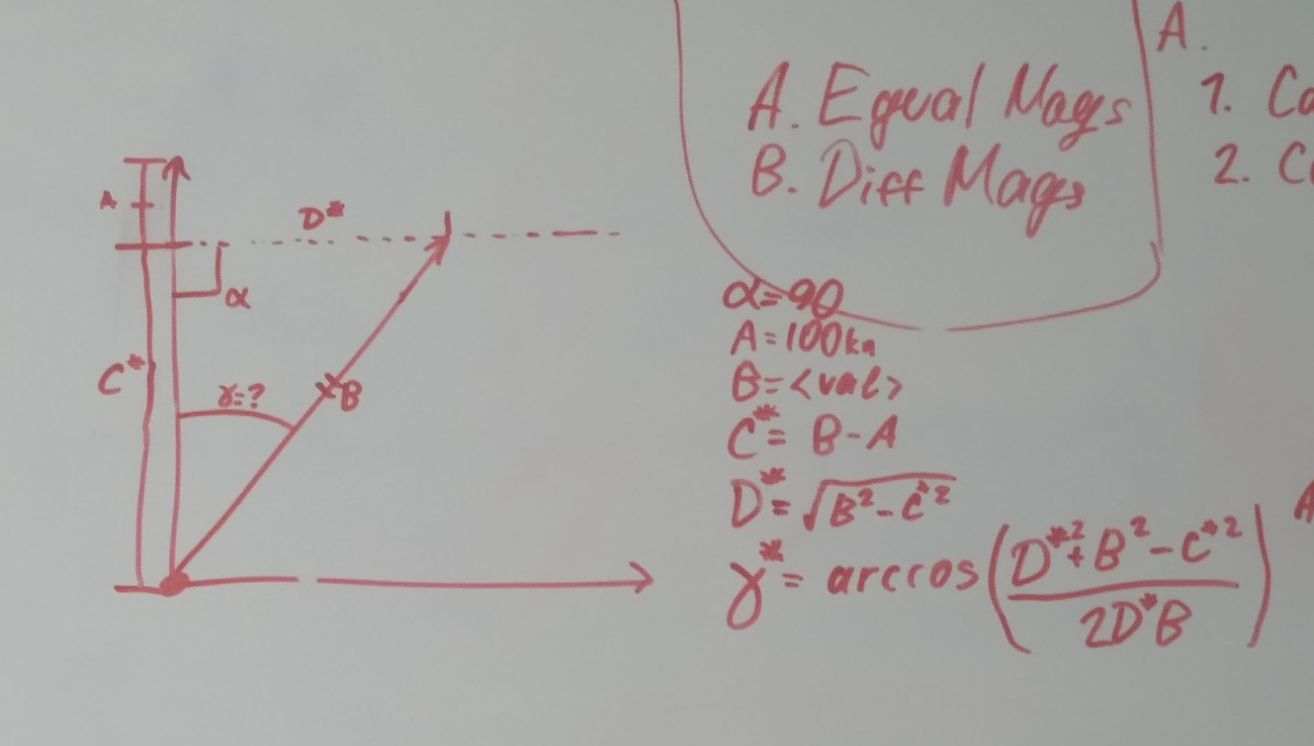 A
D*
α
C*
γ=?
B
A. Equal Mags
B. Diff Mags
α=90
A=100kn
B=<val>
C*= B-A
D*=√B²-C*²
γ*= arccos(D*²+B²-C*²/2D*B)
A.
1. Co
2. C
A